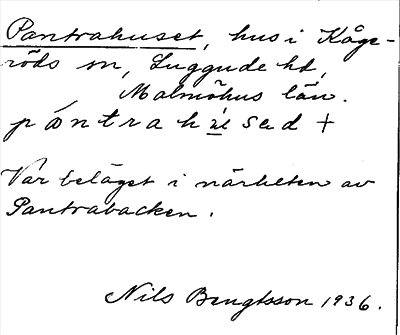 Pantrahuset, hus i Kåge-
röds sn, Luggude hd,
Malmöhus län.
pántrahùsəd +
Var beläget i närheten av
Pantrabacken.
Nils Bengtsson 1936.